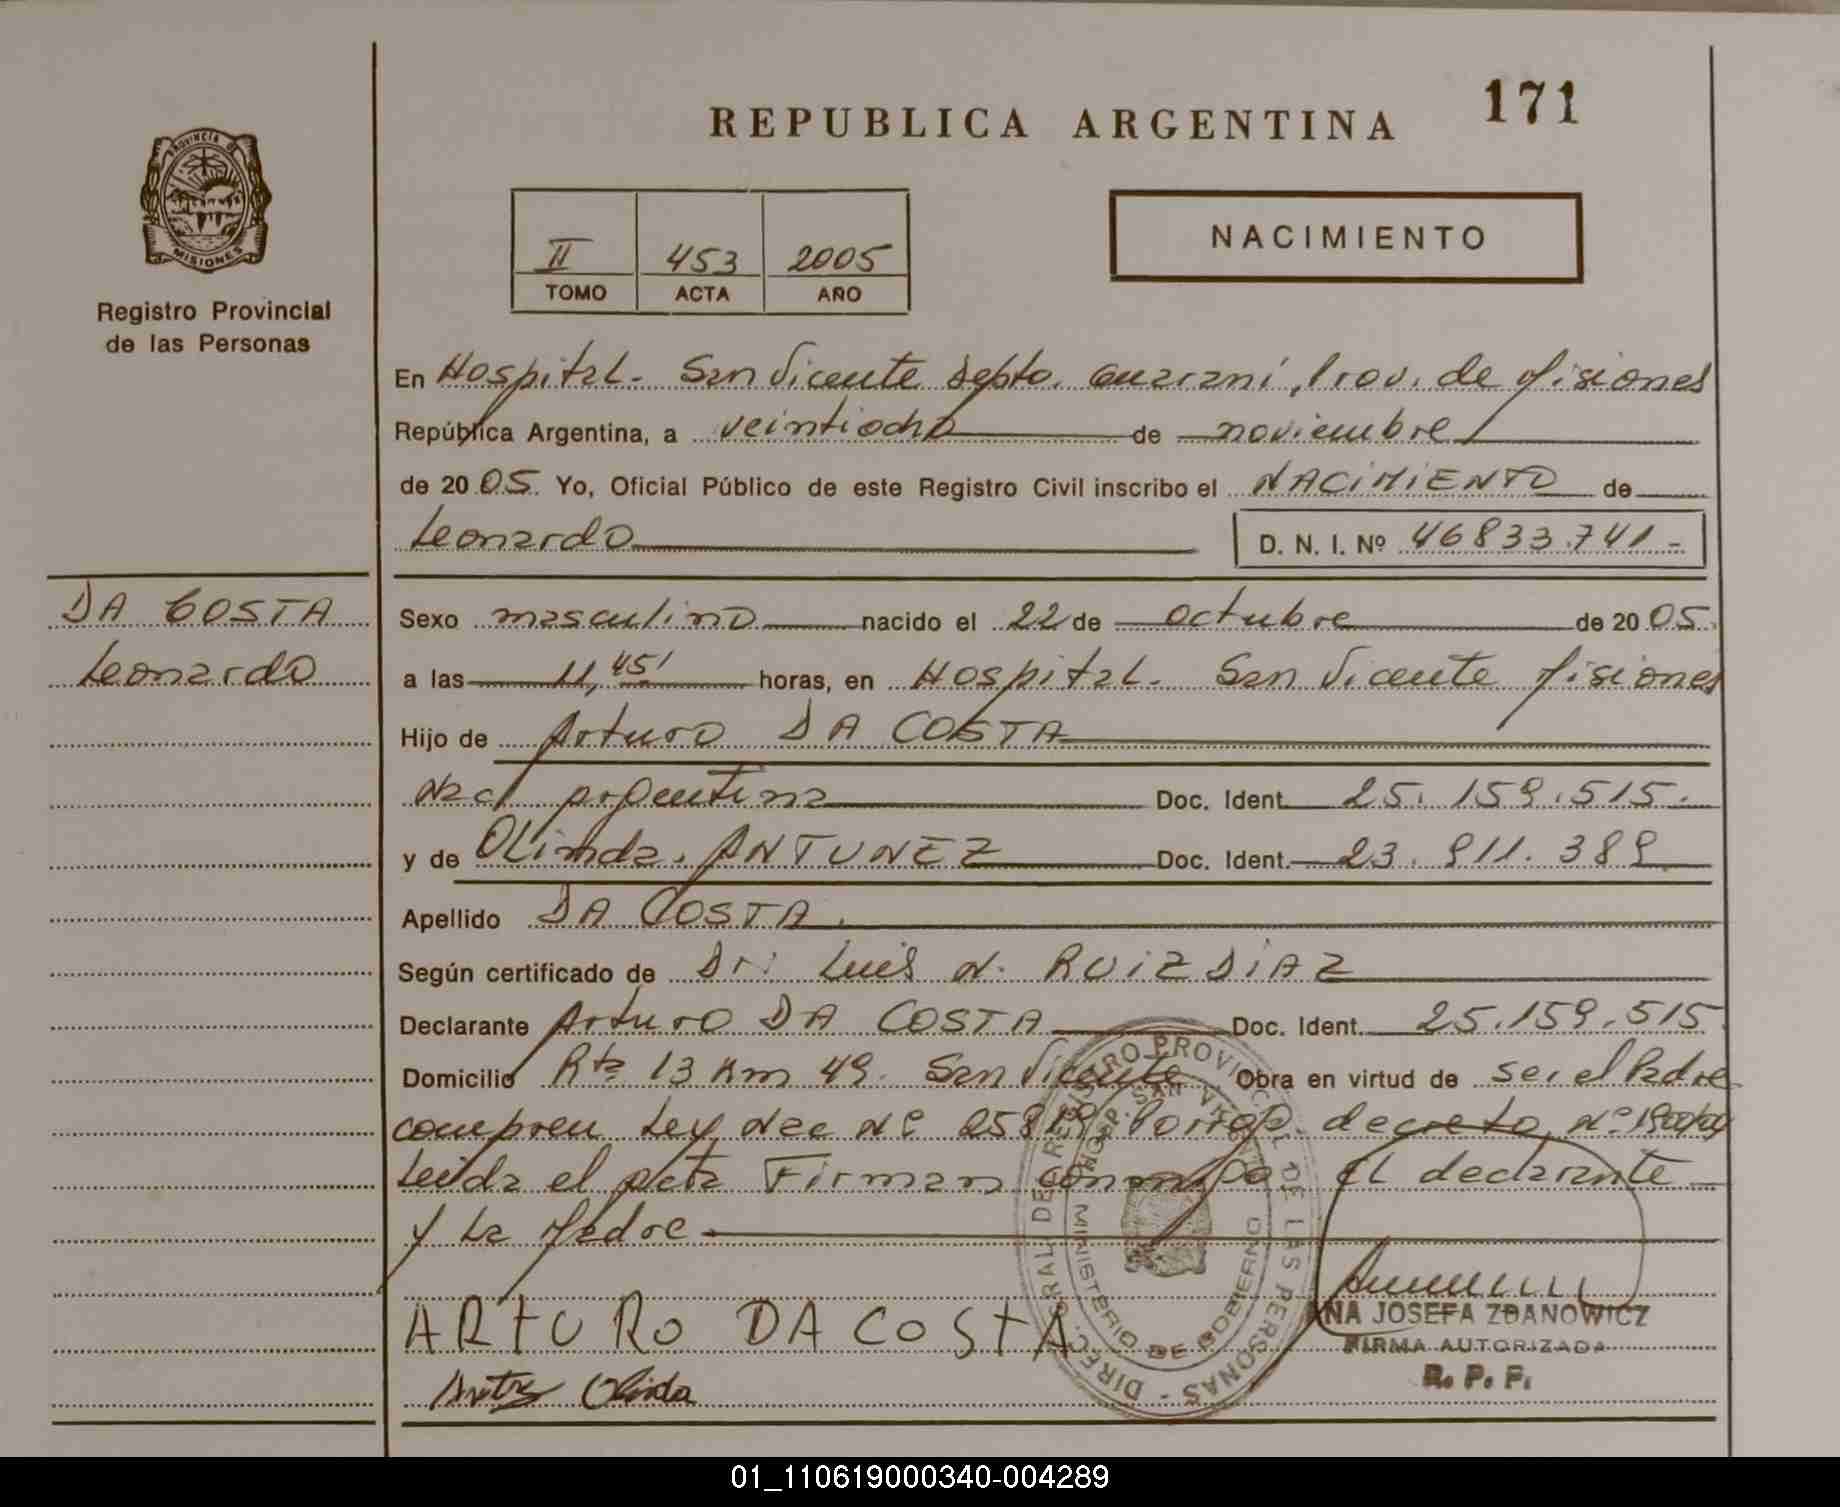 171
REPUBLICA ARGENTINA
PROVINCIA D
MISIONES
Registro Provincial
de las Personas
II 453 2005
TOMO ACTA AÑO
NACIMIENTO
En Hospital. San Vicente Depto. Guaraní, Prov. de Misiones
República Argentina, a veintiocho de noviembre
de 2005. Yo, Oficial Público de este Registro Civil inscribo el NACIMIENTO de
Leonardo D. N. I. Nº 46833.741.-
DA COSTA
Leonardo
Sexo masculino nacido el 22 de octubre de 2005.
a las 11,45' horas, en Hospital. San Vicente Misiones
Hijo de Arturo DA COSTA
Nac. Argentina Doc. Ident. 25.159.515.
y de OLinda. ANTUNEZ Doc. Ident. 23.911.389
Apellido DA COSTA.
Según certificado de Dr. Luis N. RUIZ DIAZ
Declarante Arturo DA COSTA Doc. Ident. 25.159.515
Domicilio Rta 13 Km 49. San Vicente Obra en virtud de ser el Padre
Ley Nac Nº 25819 decreto Nº
Leida el acta Firman conmigo EL declarante
y La Madre
ARTURO DA COSTA
Olinda
DIREC. GRAL DE REGISTRO PROVINCIAL DE LAS PERSONAS -
HOSP. SAN VICENTE
MINISTERIO DE GOBIERNO
ANA JOSEFA ZDANOWICZ
FIRMA AUTORIZADA
R. P. P.
01_110619000340-004289